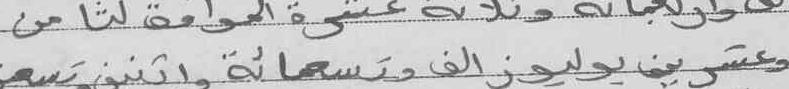 وأربعمائة وثلاثة عشرة الموافقة لثامن
وعشرين يوليوز الف وتسعمائة واثنين وتسعين